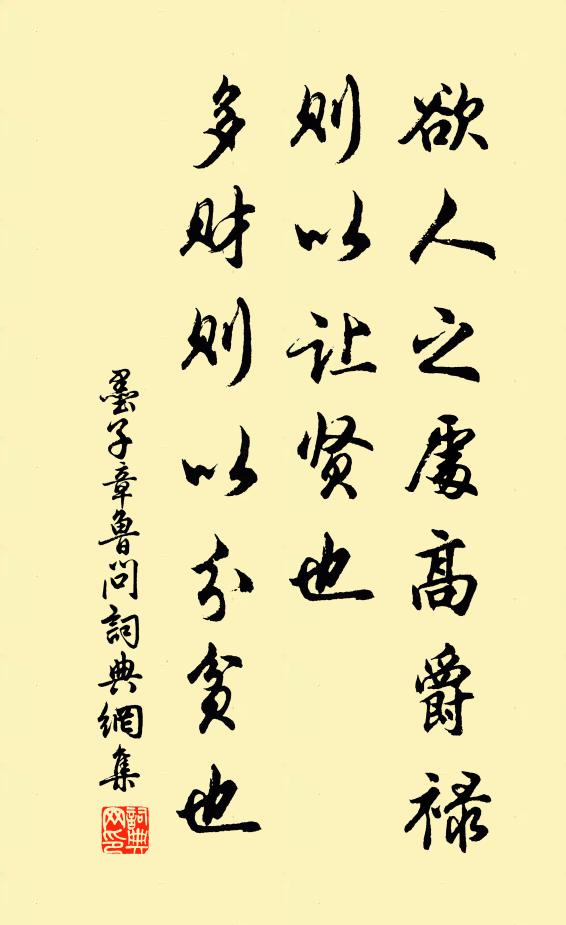 欲人之處高爵禄
则以让贤也
多财则以分贫也
墨子章魯问詞典網集
詞典网印